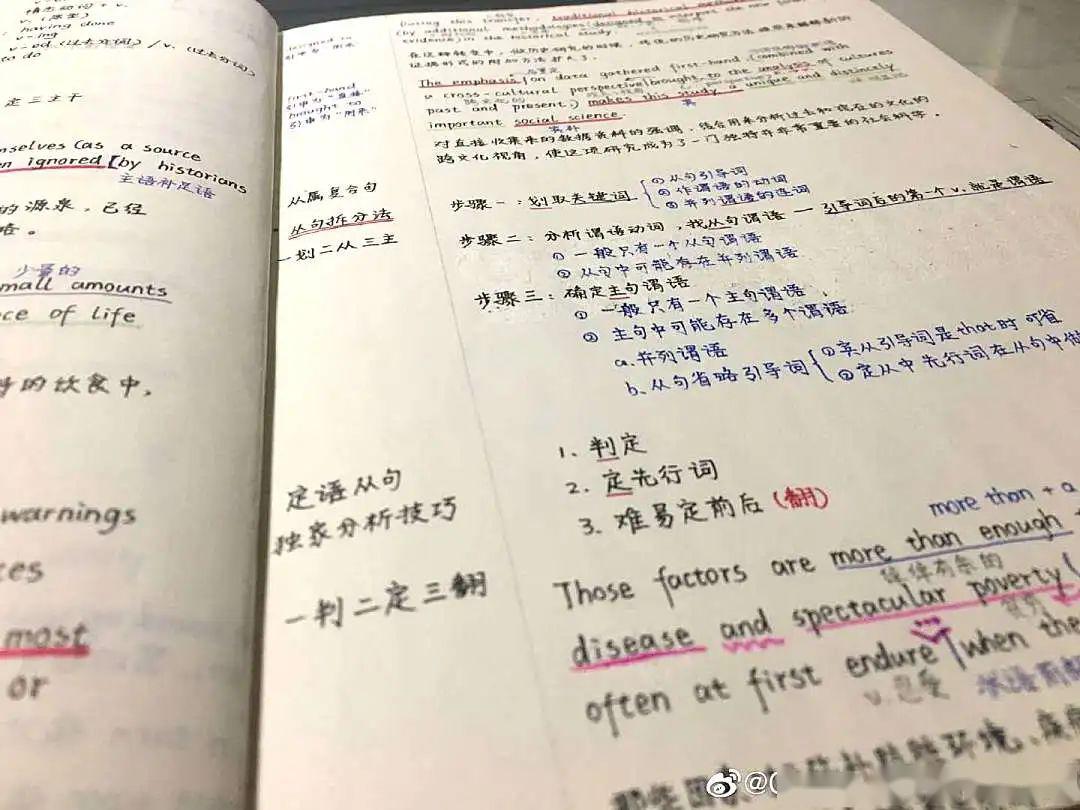 having done
v-ing
v-ed (过去分词) / v. (过去分词)
to do
定三主干
mselves (as a source
n ignored【by historians
主语补足语
的源泉，已经
少量的
mall amounts
ce of life
的饮食中，
warnings
most
or
first-hand
引申为"直接"
brought to
引申为"用来"
从属复合句
从句拆分法
一划二从三主
定语从句
独家分析技巧
一判二定三翻
During this transfer, traditional historical
(by additional methodologies designed to interpret the new
evidence) in the historical study.
The emphasis (on data gathered first-hand, (combined with
a cross-cultural perspective brought to the analysis of cultures
past and present,) makes this study a unique and distinctly
important social science.
宾补
对直接收集来的数据资料的强调，结合用来分析过去和现在的文化的
跨文化视角，使这项研究成为了一门独特并非常重要的社会科学。
步骤一：划取关键词 ① 从句引导词
② 作谓语的动词
③ 并列谓语的连词
步骤二：分析谓语动词，找从句谓语 — 引导词后的第一个v.就是谓语
① 一般只有一个从句谓语
② 从句中可能存在并列谓语
步骤三：确定主句谓语
① 一般只有一个主句谓语
② 主句中可能存在多个谓语
a. 并列谓语
b. 从句省略引导词 ① 宾从引导词是that时可省
② 定从中先行词在从句中做
1. 判定
2. 定先行词
3. 难易定前后（翻）
more than + a
Those factors are more than enough
绰绰有余的
disease and spectacular poverty (
贫穷
often at first endure when the
v.忍受